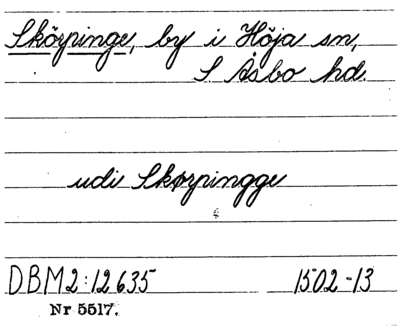 Skörpinge, by i Höja sn,
S Åsbo hd.
udi Skørpingge
DBM2:12635 1502-13
Nr 5517.